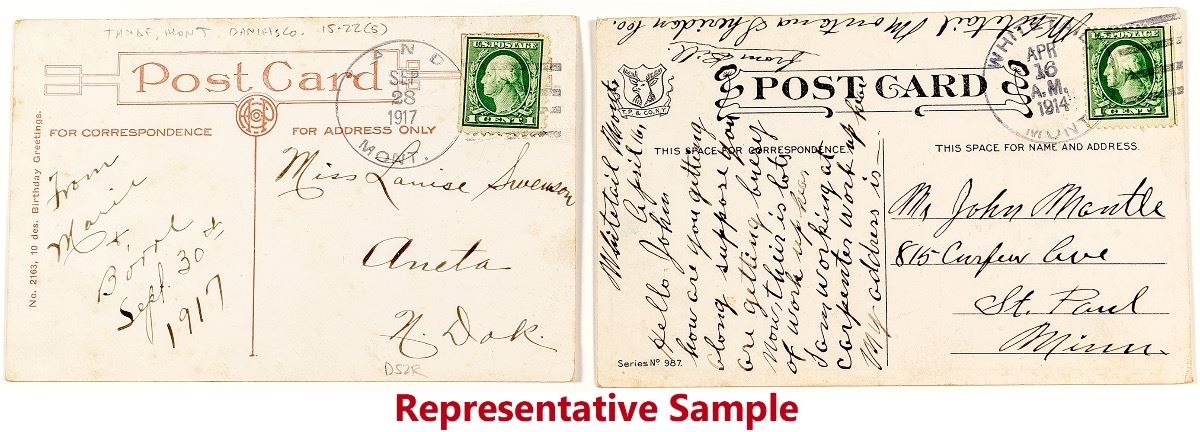 MONT DANIELS CO. 15-22(5)
Post Card
N D
SEP
28
1917
MONT.
U.S. POSTAGE
1 CENT 1
FOR CORRESPONDENCE
FOR ADDRESS ONLY
No. 2163, 10 des. Birthday Greetings.
From
Marie
Sept. 30
1917
Miss Louise Swenson
Aneta
N. Dak.
D52R
Whitetail Montana Sheridan Co.
from Bill
T.P. & CO. N.Y.
POST CARD
WHIT
APR
16
A.M.
1914
MONT
U.S. POSTAGE
1 CENT 1
THIS SPACE FOR CORRESPONDENCE.
THIS SPACE FOR NAME AND ADDRESS.
Whitetail Mont.
April 16,
Hello John
how are you getting
along suppore you
are getting busy
now, their is lots
of work up hear
I am working at
carpenter work up hear
My address is
Mr John Mantle
815 Curfew Ave
St. Paul
Minn.
Series No 987.
Representative Sample